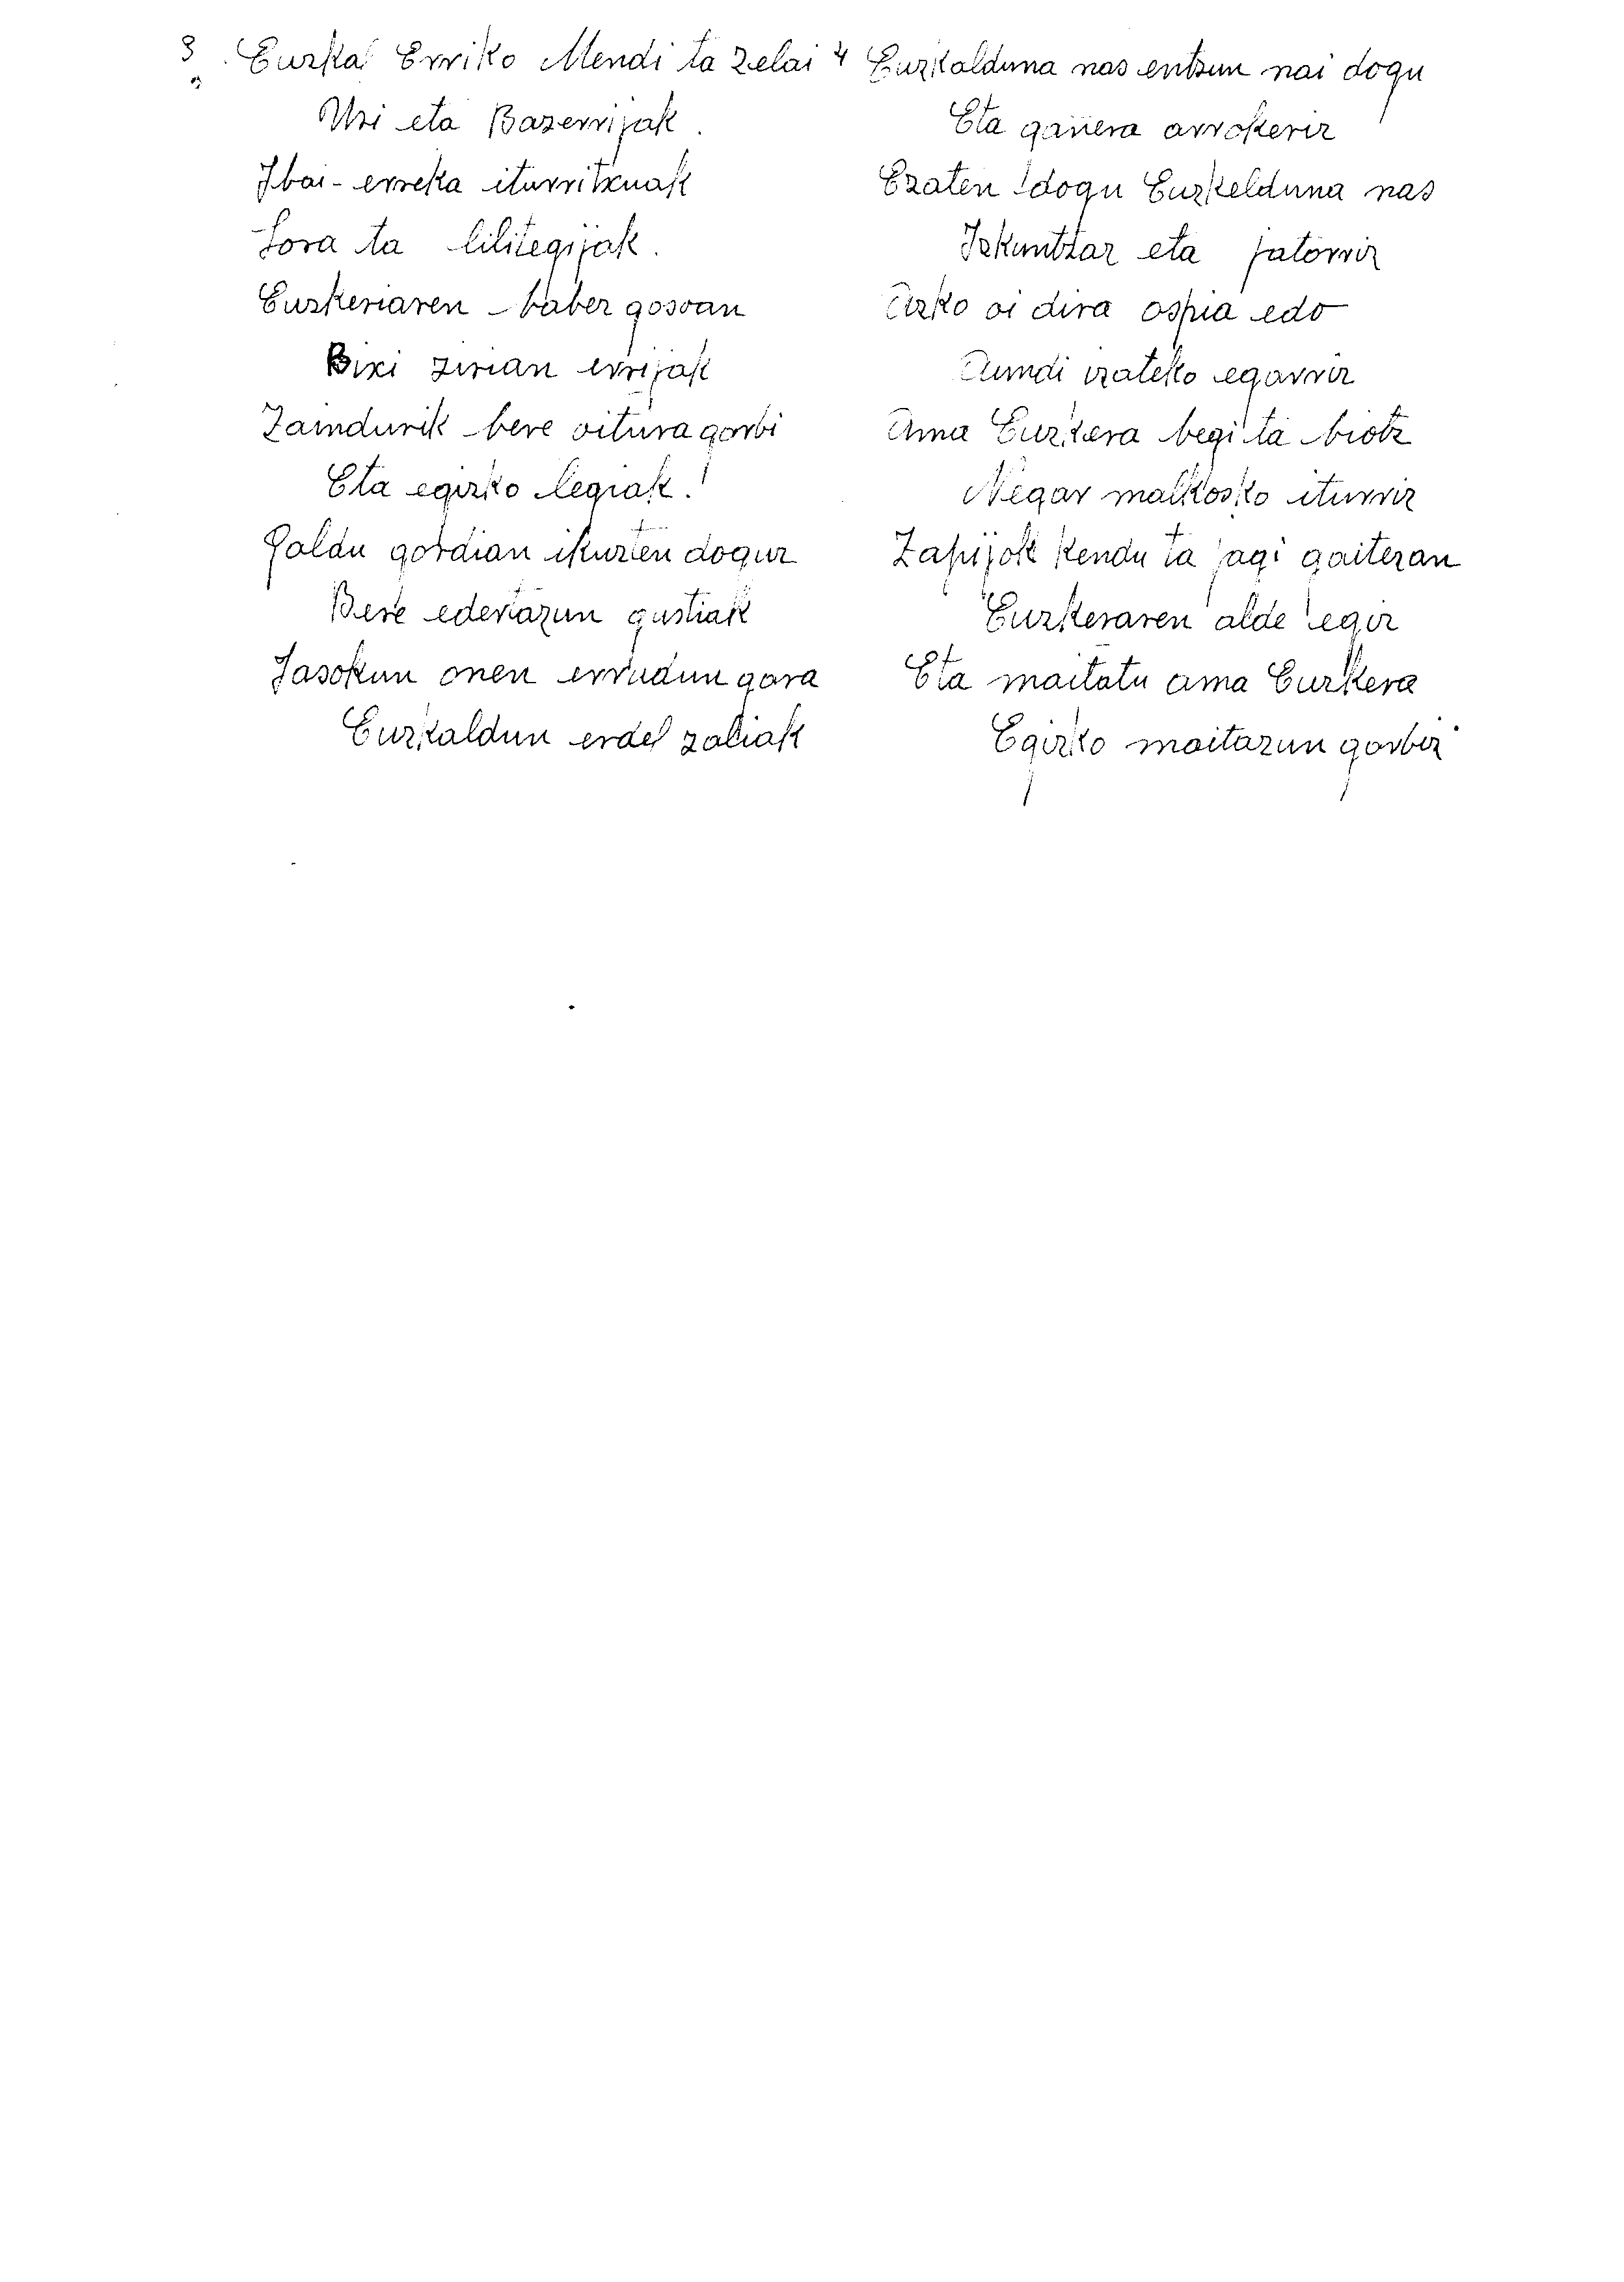 3 Euzkal Erriko Mendi ta Zelai
Uri eta Baserrijak.
Ibai-erreka iturritxuak
Lora ta lilitegijak.
Euzkeriaren baber gosoan
Bixi zirian errijak
Zaindurik bere oitura garbi
Eta egizko legiak!
Galdu gordian ikuzten doguz
Bere edertazun gustiak
Jasokun onen errudun gara
Euzkaldun erdel zaliak
4 Euzkalduna nas entzun nai dogu
Eta gañera arrokeriz
Ezaten dogu Euzkelduna nas
Izkuntzaz eta jatorriz
Azko oi dira ospia edo
Aundi izateko egarriz
Ama Euzkera begi ta biotz
Negar malkosko iturriz
Zapijok kendu ta jagi gaitezan
Euzkeraren alde egiz
Eta maitatu ama Euzkera
Egizko maitazun garbiz